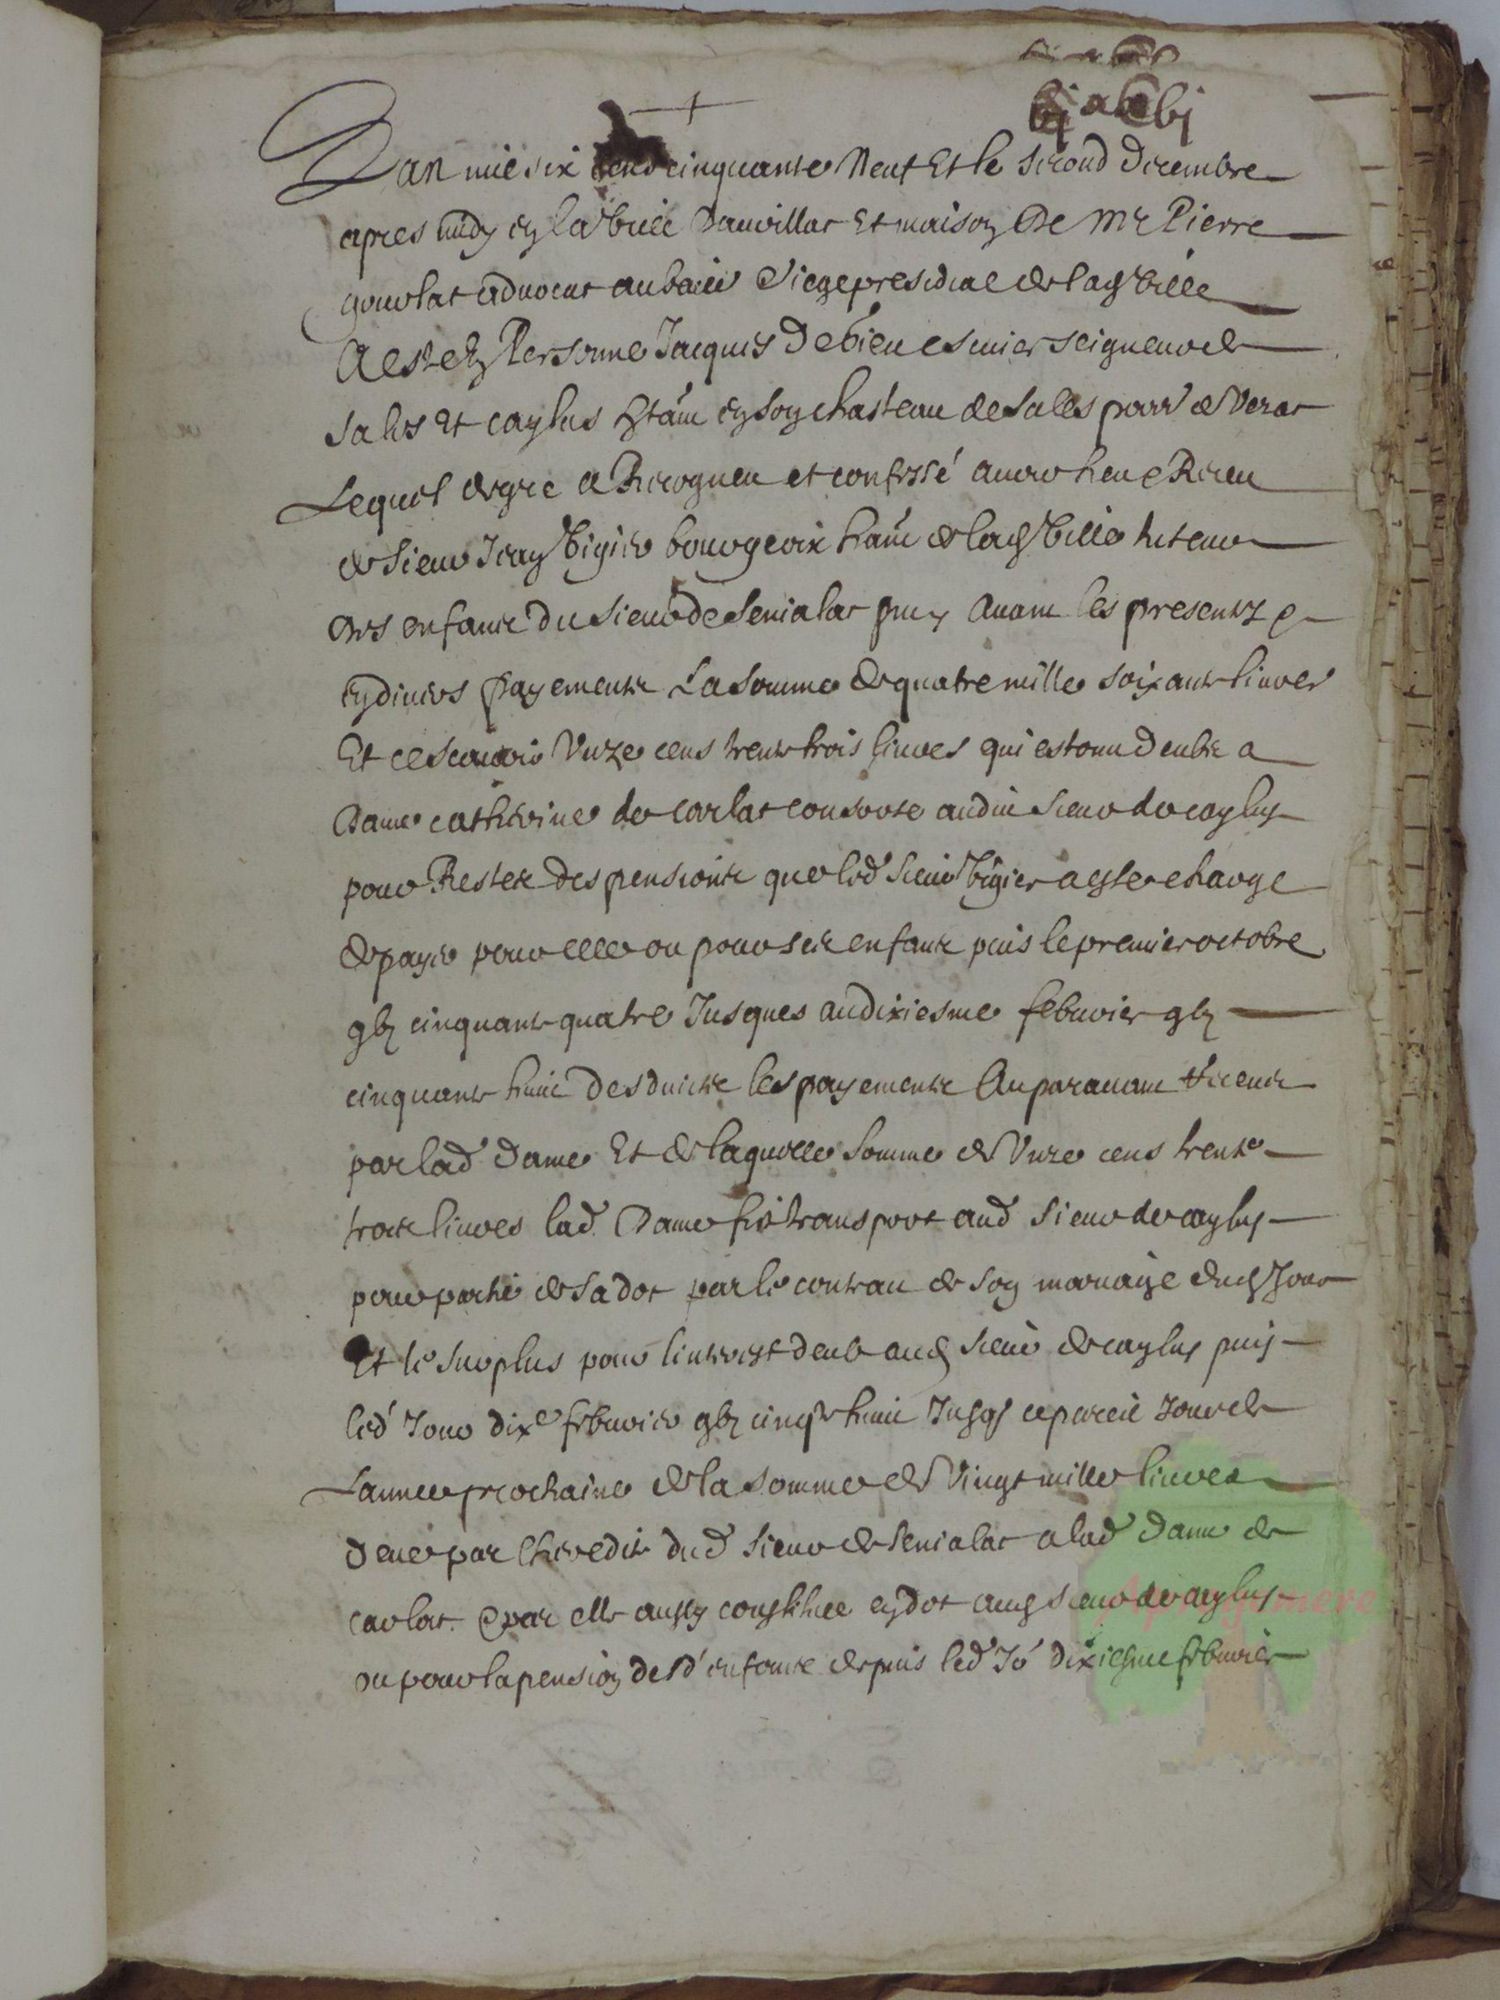 Lan mil six cens cinquante Neuf Et le second decembre
apres midy en la ville Dauvillar Et maison De Mr Pierre
goulat advocat au bail Siege presidial de lad ville
A este en Personne Jacques De bieu escuier seigneur de
sales Et caylus htant en son chasteau de sales parr de Verac
Lequel de gre a Recogneu et confessé avoir heu e Receu
de sieur Jean Vigier bourgeoix hant de lad ville tuteur
des enfants du sieur de senialac avant les presentes
en divers payements La somme de quatre mille soixante livres
Et ce scavoir Unze cens trente trois livres qui estoint deubs a
Dame catherine de carlat consorte audit sieur de caylus
pour Restes des pensions que led sieur Vigier a este charge
de payer pour elle ou pour ses enfants puis le premier octobre
cinquante quatre Jusques au dixiesme febvrier
cinquante huit desduicts les payements Auparavant Receus
par lad dame Et de laquelle somme de Unze cens trente
trois livres lad Dame fit transport aud sieur de caylus
pour partie de sa dot par le contrat de son mariage dud Jour
Et le surplus pour linterest deub aud sieur de caylus puis
led Jour dixe febvrier cinqte huit Jusqs a pareil Jour de
Lannee prochaine de la somme de Vingt mille livres
deue par lheredite dud sieur de senialac a lad dame de
carlat e par elle aussy constituee en dot aud sieur de caylus
ou pour la pension desd enfants depuis led Jo dixiesme febvrier